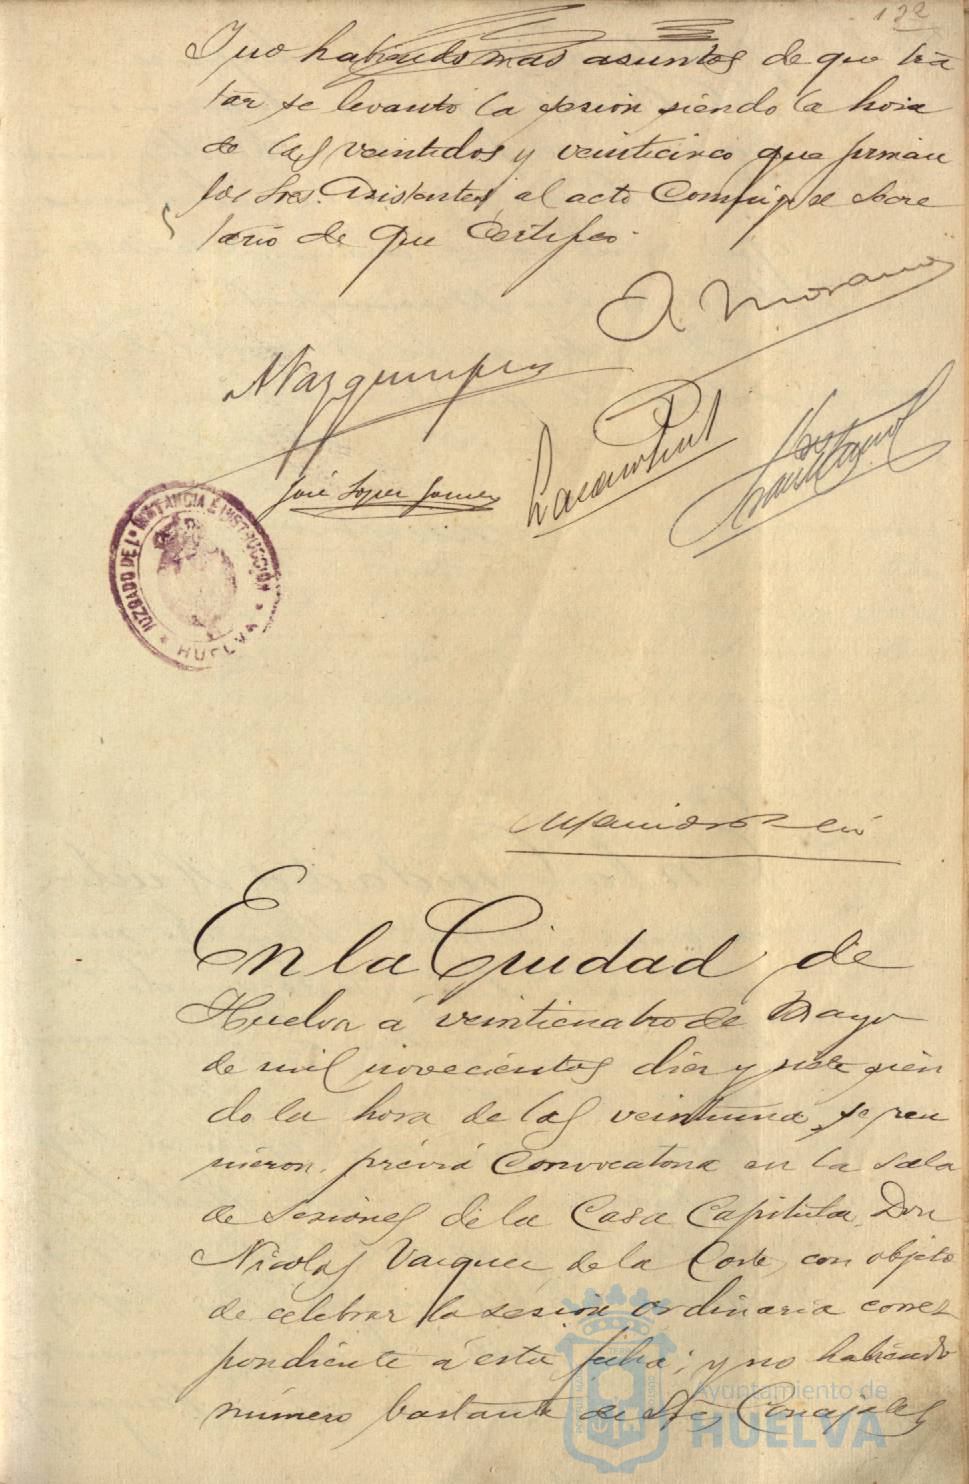 132
Y no habiendo mas asuntos de que tra
tar se levantó la sesion siendo la hora
de las veintidos y veinticinco que firman
los Sres. Asistentes al acto Conmigo el Secre
tario de que Certifico.
A Morano
José Lopez Gomez
JUZGADO DE 1ª INSTANCIA E INSTRUCCIÓN
* HUELVA *
En la Ciudad de
Huelva á veinticuatro de Mayo
de mil novecientos diez y siete sien
do la hora de las veintiuna, se reu
nieron, prévia Convocatoria en la Sala
de Sesiones de la Casa Capitular, Don
Nicolas Vazquez de la Corte, con objeto
de celebrar la sesion ordinaria corres
pondiente á esta fecha; y no habiendo
número bastante de Sres Concejales
Ayuntamiento de
HUELVA